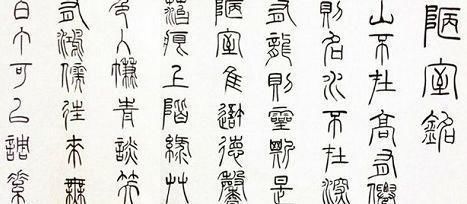 陋室銘
山不在高有僊
則名水不在深
有龍則靈斯是
陋室隹吾德馨
苔痕上階綠艸
色入簾青談笑
有鴻儒往來無
白丁可以調素